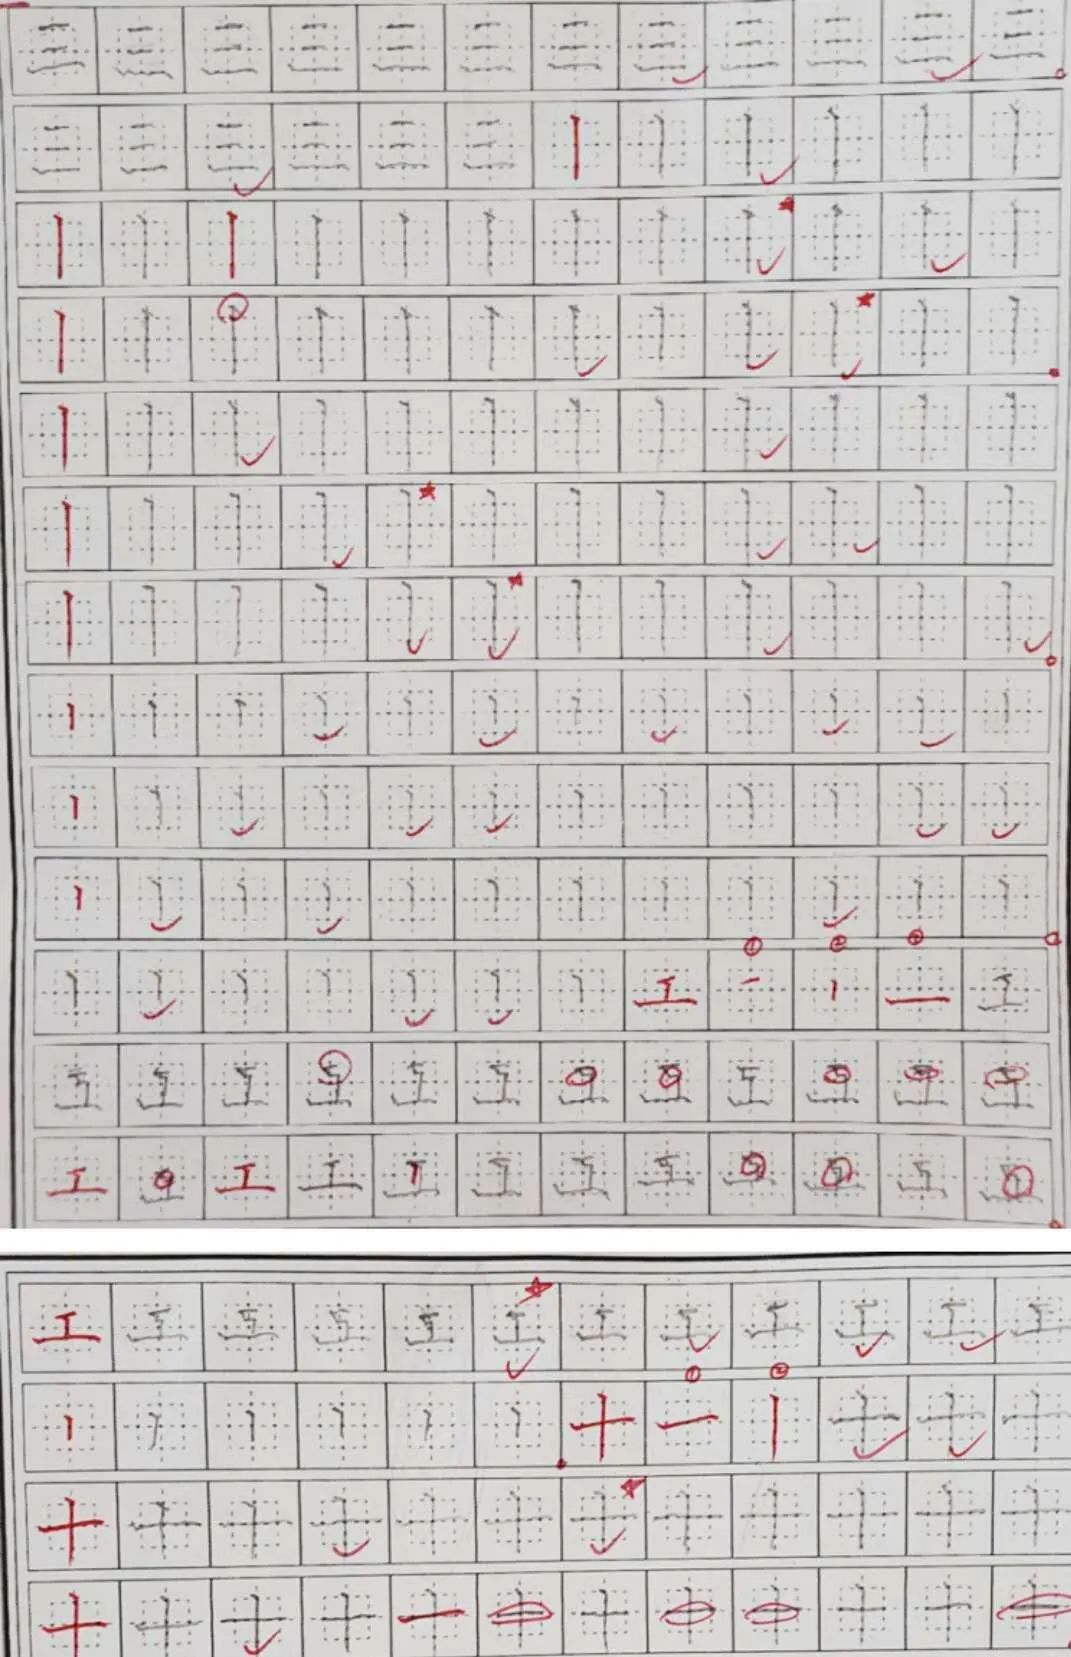 三三三三三三三三三三三三
三三三三三三丨丨丨丨丨丨
丨丨丨丨丨丨丨丨丨丨丨丨
丨丨丨丨丨丨丨丨丨丨丨丨
丨丨丨丨丨丨丨丨丨丨丨丨
丨丨丨丨丨丨丨丨丨丨丨丨
丨丨丨丨丨丨丨丨丨丨丨丨
丨丨丨丨丨丨丨丨丨丨丨丨
丨丨丨丨丨丨丨丨丨丨丨丨
丨丨丨丨丨丨丨丨丨丨丨丨
①②③
丨丨丨丨丨丨丨工一丨一工
工工工工工工工工工工工工
工工工工工工工工工工工工
工工工工工工工工工工工工
①②
丨丨丨丨丨丨十一丨十十十
十十十十十十十十十十十十
十十十十十十十十十十十十